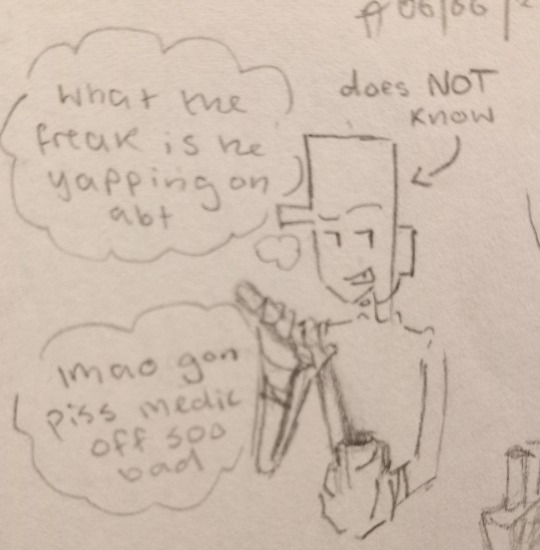 06/06/2
does NOT
know
what the
freak is he
yapping on
abt
lmao gon
piss medic
off soo
bad